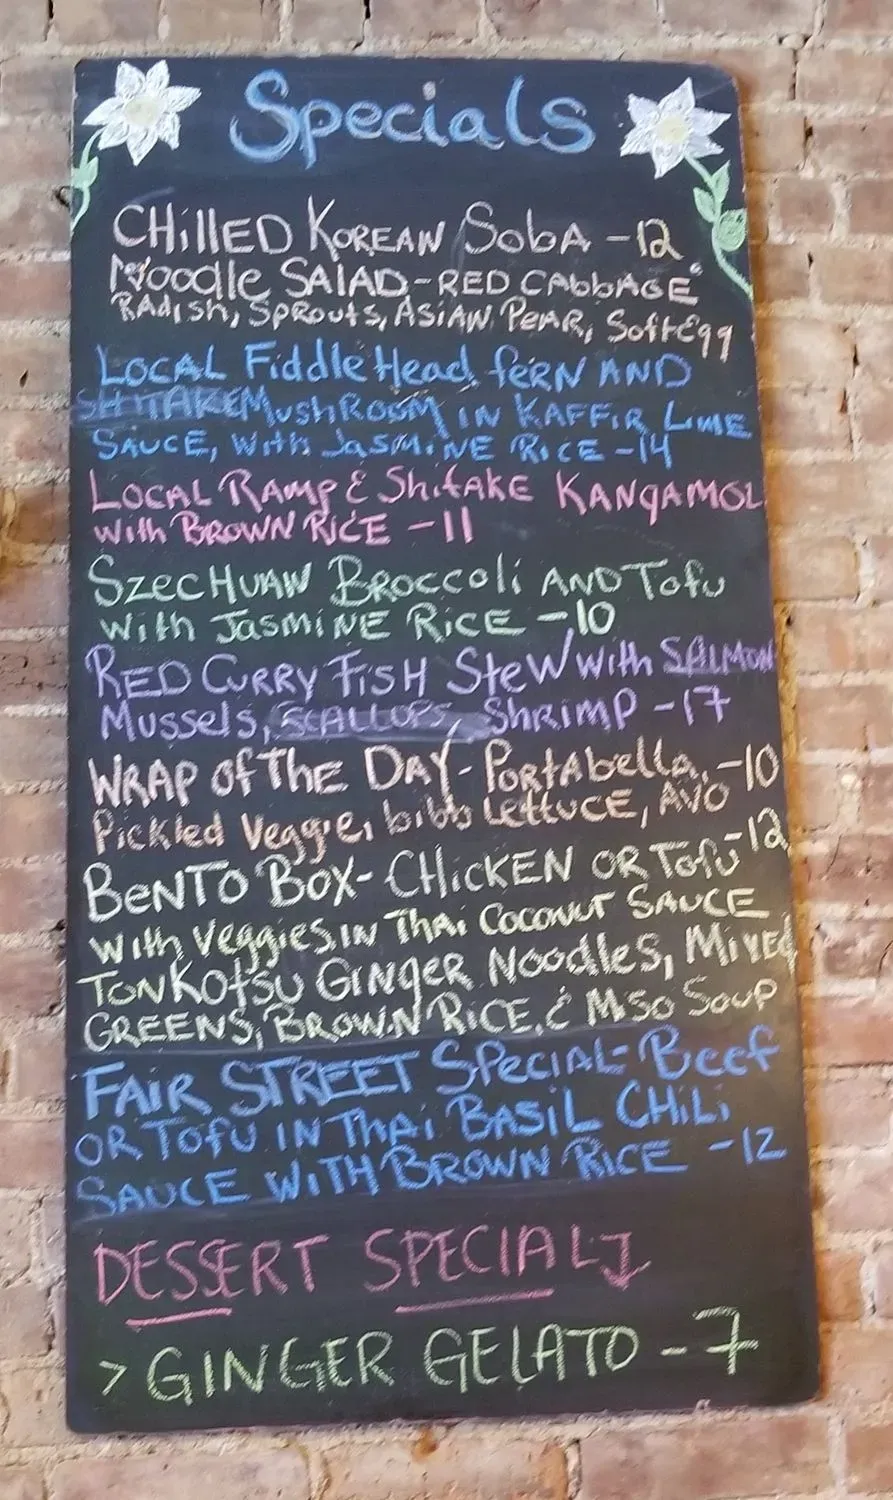 Specials
CHILLED KOREAN SOBA -12
Noodle SALAD-RED CABBAGE
RADISH, SPROUTS, ASIAN PEAR, SOFT EGG
LOCAL Fiddle Head fERN AND
SHITAKE MUSHROOM IN KAFFIR LIME
SAUCE, WITH JASMINE RICE -14
LOCAL RAMP & SHITAKE KANGAMOL
with BROWN RICE -11
SZECHUAN BROCCOLI AND TOFU
with JASMINE RICE -10
RED CURRY FISH STEW with SALMON
MUSSELS, SCALLOPS, SHRIMP -17
WRAP OF THE DAY - PORTABELLA, -10
Pickled Veggie, bibb LETTUCE, AVO
BENTO BOX- CHICKEN OR TOFU -12
with Veggies IN THAI COCONUT SAUCE
TONKOTSU GINGER NOODLES, MIXED
GREENS, BROWN RICE, & MISO SOUP
FAIR STREET SPECIAL- Beef
OR TOFU IN THAI BASIL CHILI
SAUCE WITH BROWN RICE -12
DESSERT SPECIAL
> GINGER GELATO -7